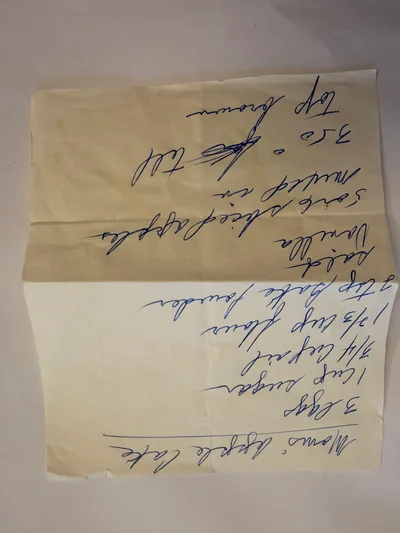 Moms' Apple Cake
3 eggs
1 cup sugar
3/4 cup oil
1 2/3 cup flour
2 tsp Bake powder
salt
Vanilla
sliced apples
mixed in
350° till
top brown